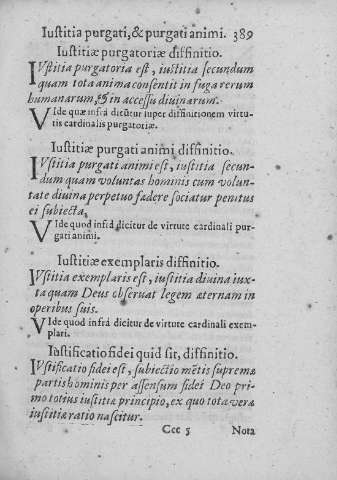 Iustitia purgati, & purgati animi. 389
Iustitiæ purgatoriæ diffinitio.
IVstitia purgatoria est, iustitia secundum
quam tota anima consentit in fuga rerum
humanarum, & in accessu diuinarum.
VIde quæ infrà dicūtur super diffinitionem virtu-
tis cardinalis purgatoriæ.
Iustitiæ purgati animi diffinitio.
IVstitia purgati animi est, iustitia secun-
dum quam voluntas hominis cum volun-
tate diuina perpetuo fœdere sociatur penitus
ei subiecta.
VIde quod infrà dicitur de virtute cardinali pur-
gati animi.
Iustitiæ exemplaris diffinitio.
IVstitia exemplaris est, iustitia diuina iux-
ta quam Deus obseruat legem æternam in
operibus suis.
VIde quod infrà dicitur de virtute cardinali exem-
plari.
Iustificatio fidei quid sit, diffinitio.
IVstificatio fidei est, subiectio mētis supremæ
partis hominis per assensum fidei Deo pri-
mo totius iustitiæ principio, ex quo tota vera
iustitiæ ratio nascitur.
Ccc 5 Nota